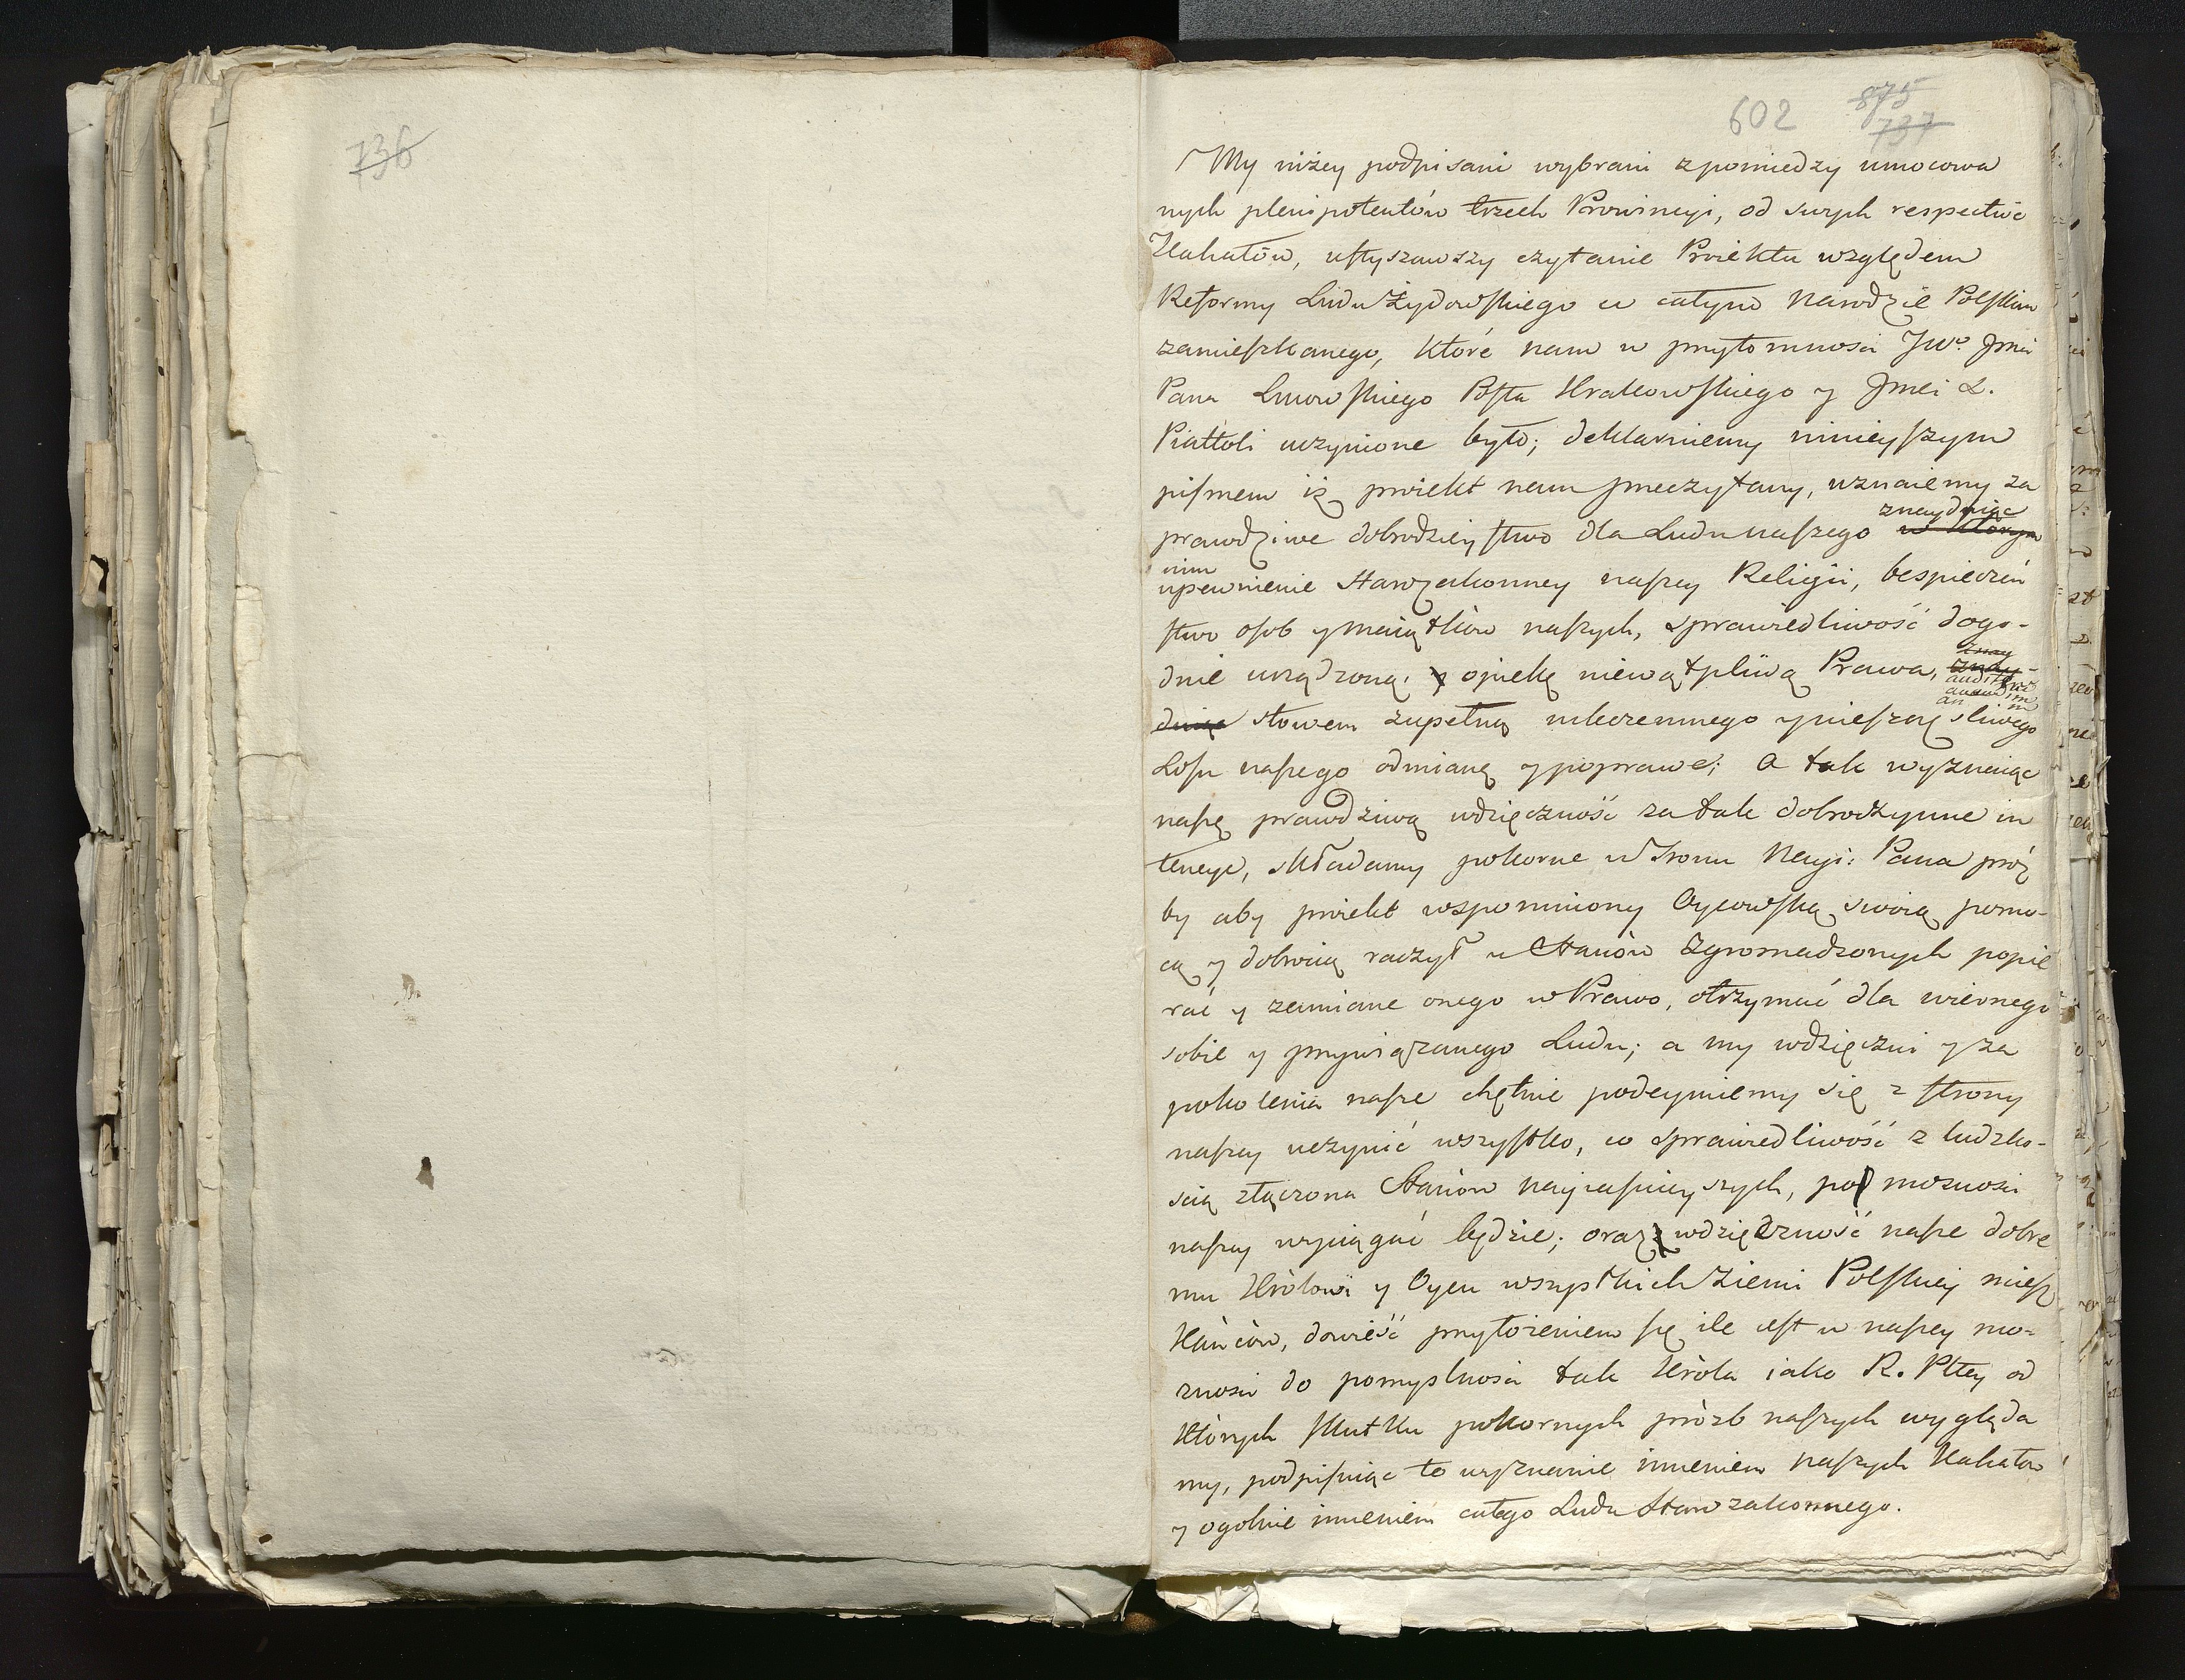 736
602 875
737
My niżey podpisani wybrani zpomiedzy umocowa
nych plenipotentów trzech Prowincyi, od swych respective
Kahałów, usłyszawszy czytanie Proiektu względem
Reformy Ludu Żydowskiego w całym Narodzie Polskim
zamieszkanego, które nam w przytomnosci JWo. Jmci
Pana Linowskiego Posła Krakowskiego y Jmci X.
Piattoli uczynione było; deklaruiemy ninieyszym
pismem iż proiekt nam przeczytany, uznaiemy za
znayduiąc
prawdziwe dobrodzieystwo dla Ludu naszego w którym
nim
upewnienie Starozakonney naszey Religii, bespieczeń
stwo osob y maiątków naszych, sprawiedliwość dogo-
dnie urządzoną, y opiekę niewątpliwą Prawa, znay-
duię słowem zupełną nikczemnego y nieszczęsliwego
Losu naszego odmianę y poprawę; a tak wyznaiąc
naszę prawdziwą wdzięczność za tak dobroczynne in
tencye, składamy pokorne u Tronu Nayi: Pana proź
by aby proiekt wspomniony Oycowską swoią pomo-
cą y dobrocią raczył u Stanów Zgromadzonych popie
rać y zamiane onego w Prawo, otrzymać dla wiernego
sobie y przywiązanego Ludu; a my wdzięczni y za
pokolenia nasze chętnie podeymiemy się z strony
naszey uczynić wszystko, co sprawiedliwość z ludzko-
scią złączona Stanów Nayiasnieyszych, po możnosci
naszey wyciągać będzie; oraz wdzięczność nasze dobre
mu Królowi y Oycu wszystkich Ziemi Polskiey miesz
kańców, dowieść przyłożeniem się ile iest w naszey mo-
znosci do pomyslnosci tak Króla iako R. Pltey od
których skutku pokornych próźb naszych wygląda
my, podpisuiąc to wyznanie imieniem naszych Kahałów
y ogolnie imieniem całego Ludu Starozakonnego.